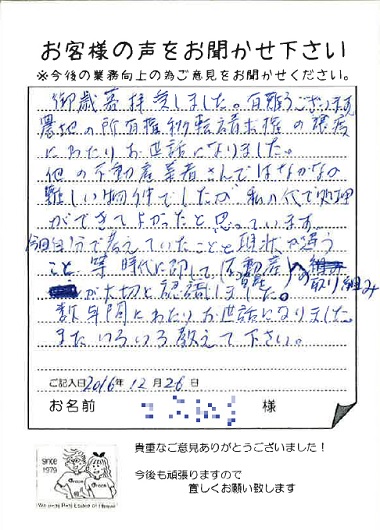 お客様の声をお聞かせ下さい
※今後の業務向上の為ご意見をお聞かせください。
御歳暮拝受しました。有難うございます
農地の所有権移転
にわたりお世話になりました。
他の不動産業者さんではなかなか
難しい物件でしたが私の代で処理
ができてよかったと思っています
今回自分で考えていたことと現状が違う
こと等時代に即して不動産への取り組み
が大切と認識しました。
数年間にわたりお世話になりました
またいろいろ教えて下さい。
ご記入日 2016年 12月 26日
お名前 様
SINCE
1979
貴重なご意見ありがとうございました！
今後も頑張りますので
宜しくお願い致します